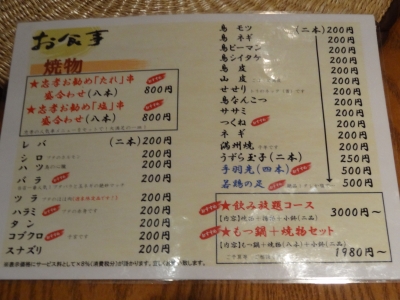 お食事
焼物
★忠孝お勧め「たれ」串
盛合わせ(八本) 800円
★忠孝お勧め「塩」串
盛合わせ(八本) 800円
レバ (二本)200円
シロ 200円
ハツ 200円
バラ 200円
ツラ 200円
ハラミ 200円
タン 200円
コブクロ 200円
スナズリ 200円
鳥モツ (二本)200円
鳥ネギ 200円
鳥ピーマン 200円
鳥シイタケ 200円
鳥皮 200円
山皮 200円
せせり 200円
鳥なんこつ 200円
ササミ 200円
つくね 200円
ネギ 200円
満州焼 200円
うずら玉子(二本) 250円
手羽先(四本) 500円
若鶏の足 500円
★飲み放題コース
3000円~
★もつ鍋+焼物セット
【内容】もつ鍋+焼物(八本)+小鉢(二品)
1980円~